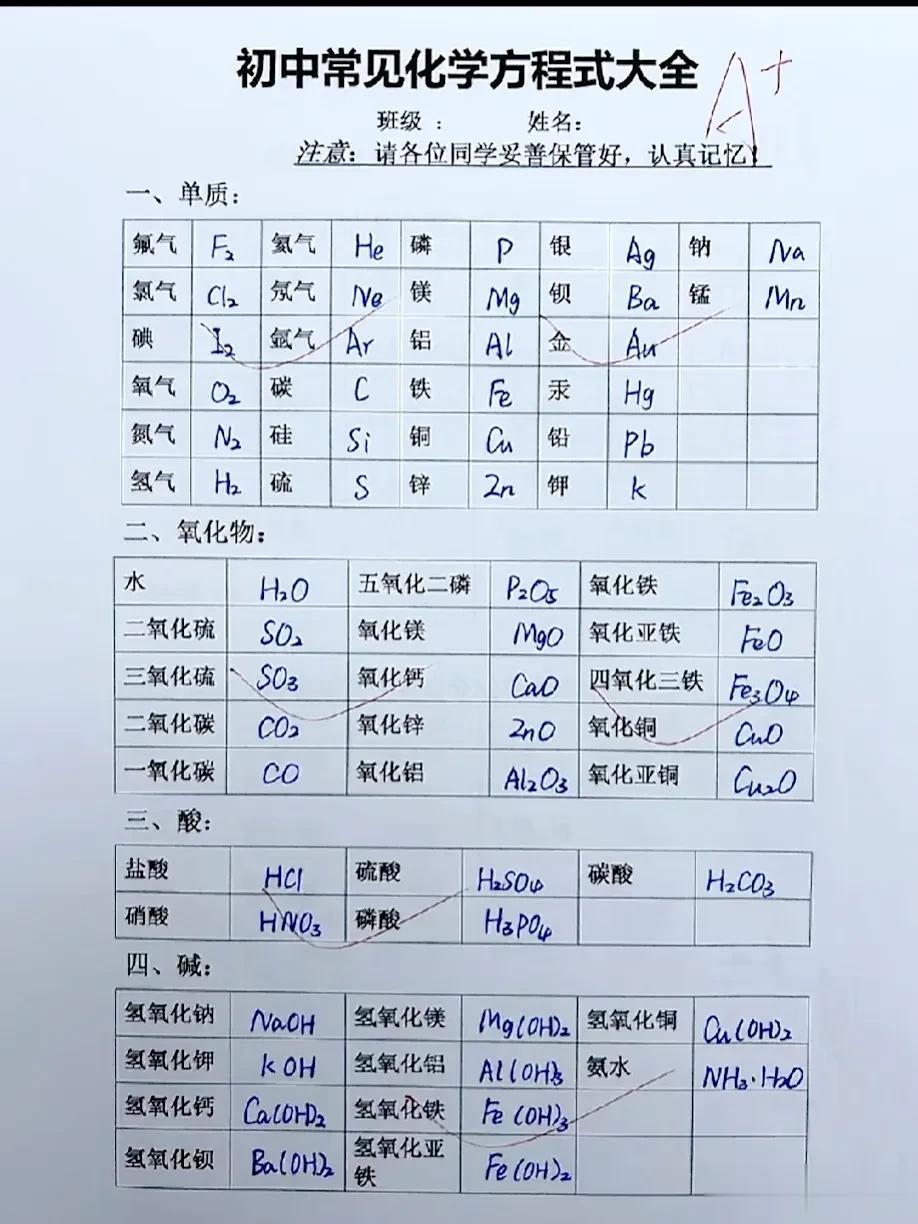 初中常见化学方程式大全 A+
班级 ： 姓名：
注意：请各位同学妥善保管好，认真记忆！
一、单质：
氟气 F₂ 氦气 He 磷 P 银 Ag 钠 Na
氯气 Cl₂ 氖气 Ne 镁 Mg 钡 Ba 锰 Mn
碘 I₂ 氩气 Ar 铝 Al 金 Au
氧气 O₂ 碳 C 铁 Fe 汞 Hg
氮气 N₂ 硅 Si 铜 Cu 铅 Pb
氢气 H₂ 硫 S 锌 Zn 钾 K
二、氧化物：
水 H₂O 五氧化二磷 P₂O₅ 氧化铁 Fe₂O₃
二氧化硫 SO₂ 氧化镁 MgO 氧化亚铁 FeO
三氧化硫 SO₃ 氧化钙 CaO 四氧化三铁 Fe₃O₄
二氧化碳 CO₂ 氧化锌 ZnO 氧化铜 CuO
一氧化碳 CO 氧化铝 Al₂O₃ 氧化亚铜 Cu₂O
三、酸：
盐酸 HCl 硫酸 H₂SO₄ 碳酸 H₂CO₃
硝酸 HNO₃ 磷酸 H₃PO₄
四、碱：
氢氧化钠 NaOH 氢氧化镁 Mg(OH)₂ 氢氧化铜 Cu(OH)₂
氢氧化钾 KOH 氢氧化铝 Al(OH)₃ 氨水 NH₃·H₂O
氢氧化钙 Ca(OH)₂ 氢氧化铁 Fe(OH)₃
氢氧化钡 Ba(OH)₂ 氢氧化亚铁 Fe(OH)₂